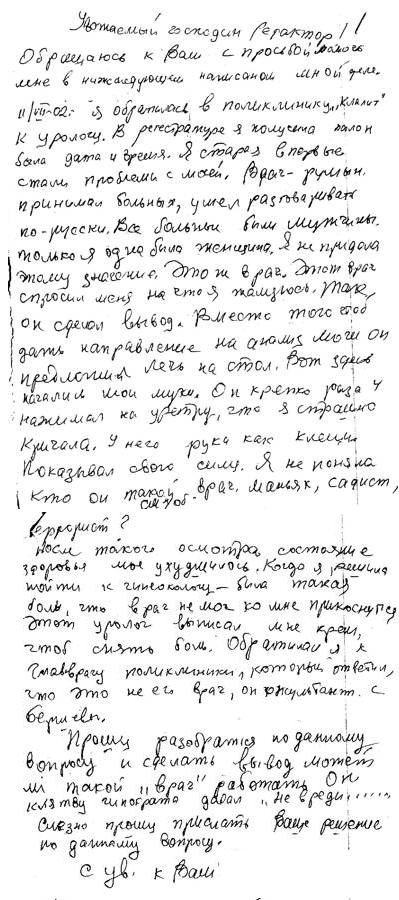 Уважаемый господин Редактор!!
Обращаюсь к Вам с просьбой помочь
мне в нижеследующем написаном мной деле.
11/VII-02. я обратилась в поликлинику „Клалит"
к урологу. В регистратуре я получила талон
была дата и время. Я старая впервые
стали проблемы с мочей. Врач-румын.
принимал больных, умел разговаривать
по-русски. Все больные были мужчины.
только я одна была женщина. Я не придала
этому значение. Это ж врач. Этот врач
спросил меня на что я жалуюсь. Так,
он сделал вывод. Вместо того чтоб
дать направление на анализ мочи он
предложил лечь на стол. Вот здесь
начались мои муки. Он крепко раза 4
нажимал на уретру, что я страшно
кричала. У него рука как клещи
Показывал свою силу. Я не поняла
кто он такой врач, маньяк, садист,
террорист?
После такого осмотра состояние
здоровья мое ухудшилось. Когда я решила
пойти к гинекологу – была такая
боль, что врач не мог ко мне прикоснуться
Этот уролог выписал мне крем,
чтоб снять боль. Обратилась я к
главврачу поликлиники, который ответил,
что это не его врач, он консультант. с
Прошу разобратся по данному
вопросу и сделать вывод может
ли такой „врач" работать Он
клятву гипократа давал „не вреди......
Слезно прошу прислать Ваше решение
по данному вопросу.
С ув. к Вам